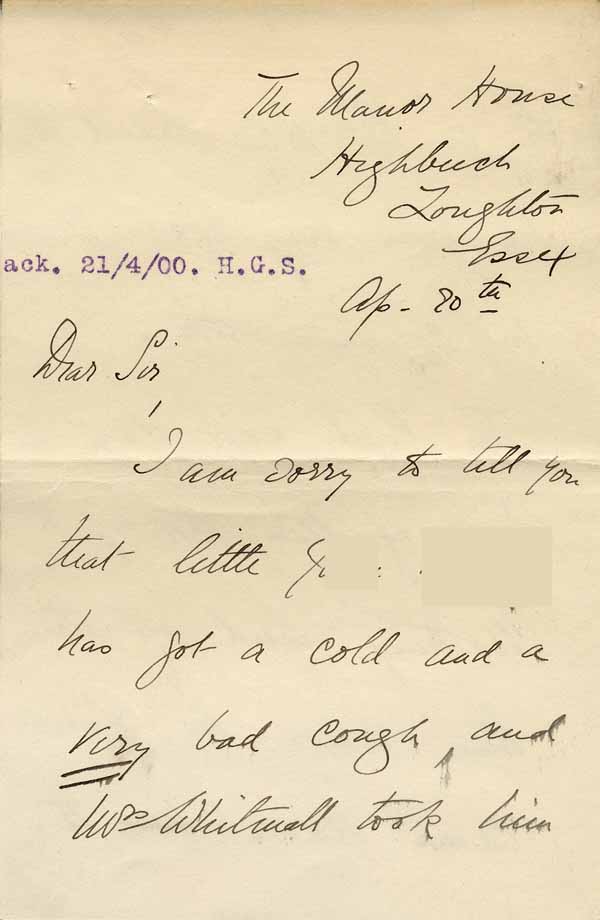 The Manor House
Highbeech
Loughton
Essex
ack. 21/4/00. H.G.S.
Ap. 20th
Dear Sir,
I am sorry to tell you
that little
has got a cold and a
very bad cough, and
Mrs Whitmall took him